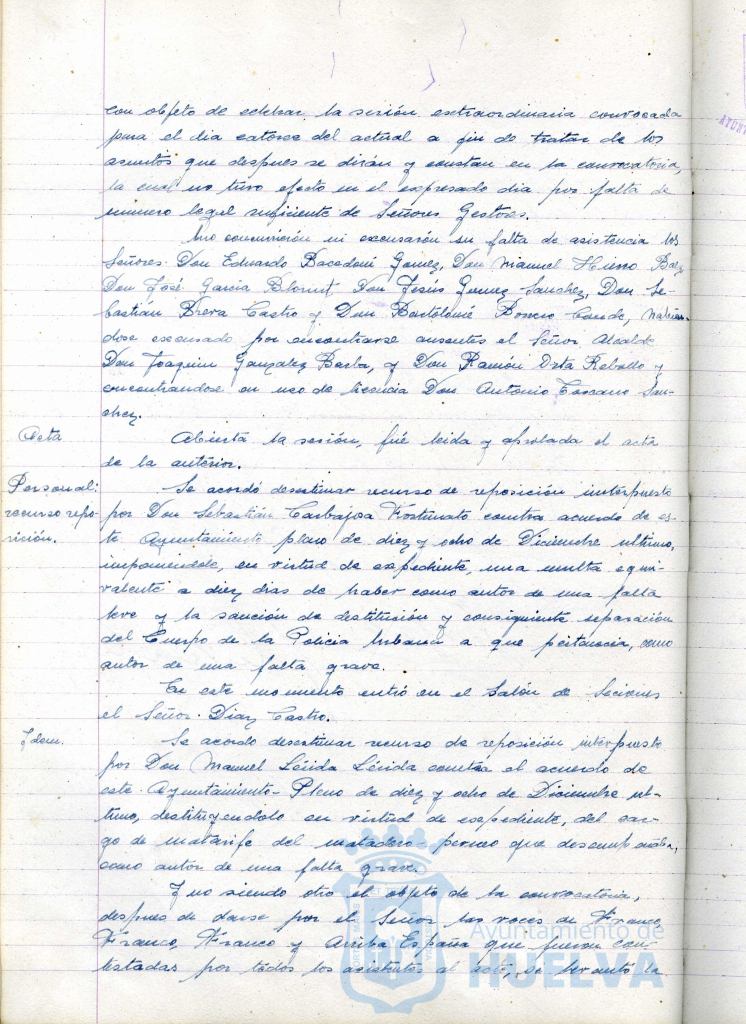 con objeto de celebrar la sesión extraordinaria convocada
para el dia catorce del actual a fin de tratar de los
asuntos que despues se dirán y constan en la convocatoria,
la cual no tuvo efecto en el expresado dia por falta de
numero legal suficiente de Señores Gestores.
No concurrieron ni excusaron su falta de asistencia los
Señores: Don Eduardo Bacedoni Gomez, Don Manuel Hierro Baez
Don José Garcia Don Jesús Gomez Sanchez, Don Se-
bastián Brera Castro y Don Bartolomé Romero Conde, habien-
dose excusado por encontrarse ausentes el Señor Alcalde
Don Joaquin Gonzalez Barba, y Don Ramón Orta Rebollo y
encontrandose en uso de licencia Don Antonio Toscano San-
chez.
Acta
Abierta la sesión, fué leida y aprobada el acta
de la anterior.
Personal:
recurso repo-
sición.
Se acordó desestimar recurso de reposición interpuesto
por Don Sebastián Carbajosa contra acuerdo de es-
te Ayuntamiento pleno de diez y ocho de Diciembre ultimo,
imponiendole, en virtud de expediente, una multa equi-
valente a diez dias de haber como autor de una falta
leve y la sanción de destitución y consiguiente separación
del Cuerpo de la Policia Urbana a que pertenecia, como
autor de una falta grave.
En este momento entró en el Salón de Seciones
el Señor Diaz Castro.
Idem.
Se acordo desestimar recurso de reposición interpuesto
por Don Manuel Lérida Lérida contra el acuerdo de
este Ayuntamiento-Pleno de diez y ocho de Diciembre ul-
timo, destituyendolo en virtud de expediente, del car-
go de matarife del matadero que desempeñaba,
como autor de una falta grave.
Y no siendo otro el objeto de la convocatoria,
despues de darse por el Señor las voces de Franco,
Franco, Franco y Arriba España que fueron con-
testadas por todos los asistentes al acto, se levantó la
Ayuntamiento de
HUELVA